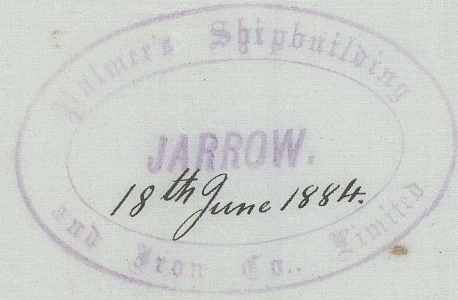 Palmer's Shipbuilding
JARROW.
18th June 1884.
and Iron Co., Limited